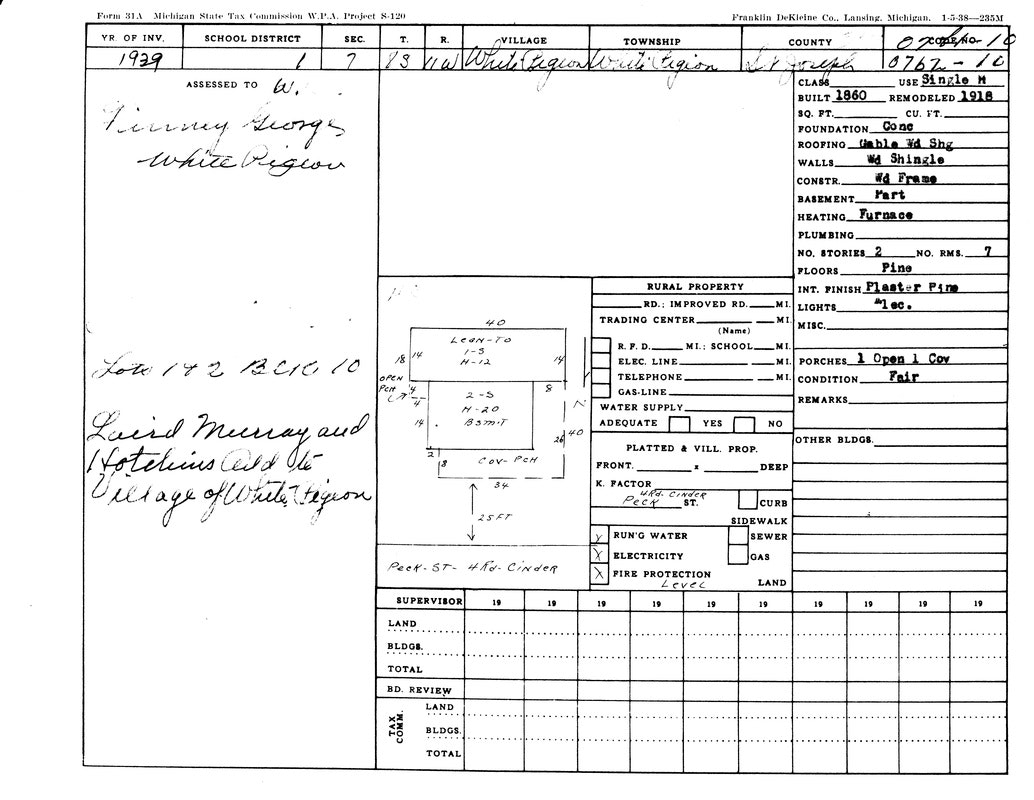 Form 31A Michigan State Tax Commission W.P.A. Project S-120
Franklin DeKleine Co., Lansing, Michigan. 1-5-38—235M
YR. OF INV. SCHOOL DISTRICT SEC. T. R. VILLAGE TOWNSHIP COUNTY CODE NO.
1939 1 7 8S 11W White Pigeon White Pigeon St Joseph 0762-10
ASSESSED TO W.
Finney George
White Pigeon
Lots 1+2 BCK 10
Laird Murray and
Hotchins Add to
Village of White Pigeon
CLASS USE Single M
BUILT 1860 REMODELED 1918
SQ. FT. CU. FT.
FOUNDATION Conc
ROOFING Gable Wd Shg
WALLS Wd Shingle
CONSTR. Wd Frame
BASEMENT Part
HEATING Furnace
PLUMBING
NO. STORIES 2 NO. RMS. 7
FLOORS Pine
INT. FINISH Plaster Pine
LIGHTS Elec.
MISC.
PORCHES 1 Open 1 Cov
CONDITION Fair
REMARKS
OTHER BLDGS.
40
Lean-To
1-S
H-12
18 14
14
OPEN
PCH
4
4
8
2-S
H-20
Bsm-T
14
N
40
26
2
8
Cov-PCH
34
25FT
Peck-ST- 4Rd-Cinder
RURAL PROPERTY
RD.; IMPROVED RD. MI.
TRADING CENTER MI.
(Name)
R.F.D. MI.; SCHOOL MI.
ELEC. LINE MI.
TELEPHONE MI.
GAS-LINE
WATER SUPPLY
ADEQUATE YES NO
PLATTED & VILL. PROP.
FRONT. x DEEP
K. FACTOR
4Rd-Cinder
Peck ST. CURB
SIDEWALK
X RUN'G WATER SEWER
X ELECTRICITY GAS
X FIRE PROTECTION
Level LAND
SUPERVISOR 19 19 19 19 19 19 19 19 19
LAND
BLDGS.
TOTAL
BD. REVIEW
TAX COMM.
LAND
BLDGS.
TOTAL